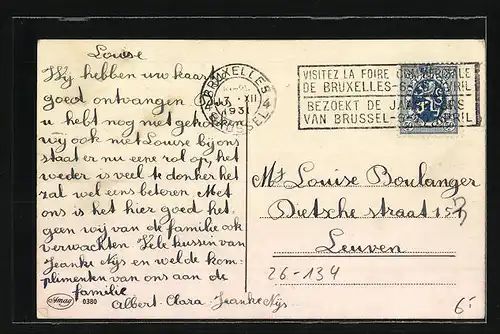 Louise
Wij hebben uw kaart
goed ontvangen
u hebt nog niet
wij ook niet Louise bij ons
staat er nu eene rol op het
weder is veel te donker het
zal wel eens beteren. Met
ons is het hier goed het
geen wij van de familie ook
verwachten Vele kussen van
Jeanke Nijs en wel de kom-
plimenten van ons aan de
familie
Albert-Clara-Jeanke Nijs
Amag 0380
BRUXELLES
XII
1931
BRUSSEL
VISITEZ LA FOIRE COMMERCIALE
DE BRUXELLES-6- AVRIL
BEZOEKT DE JAARBEURS
VAN BRUSSEL-6- APRIL
Mt Louise Boulanger
Dietsche straat 153
Leuven
26-134
6.-